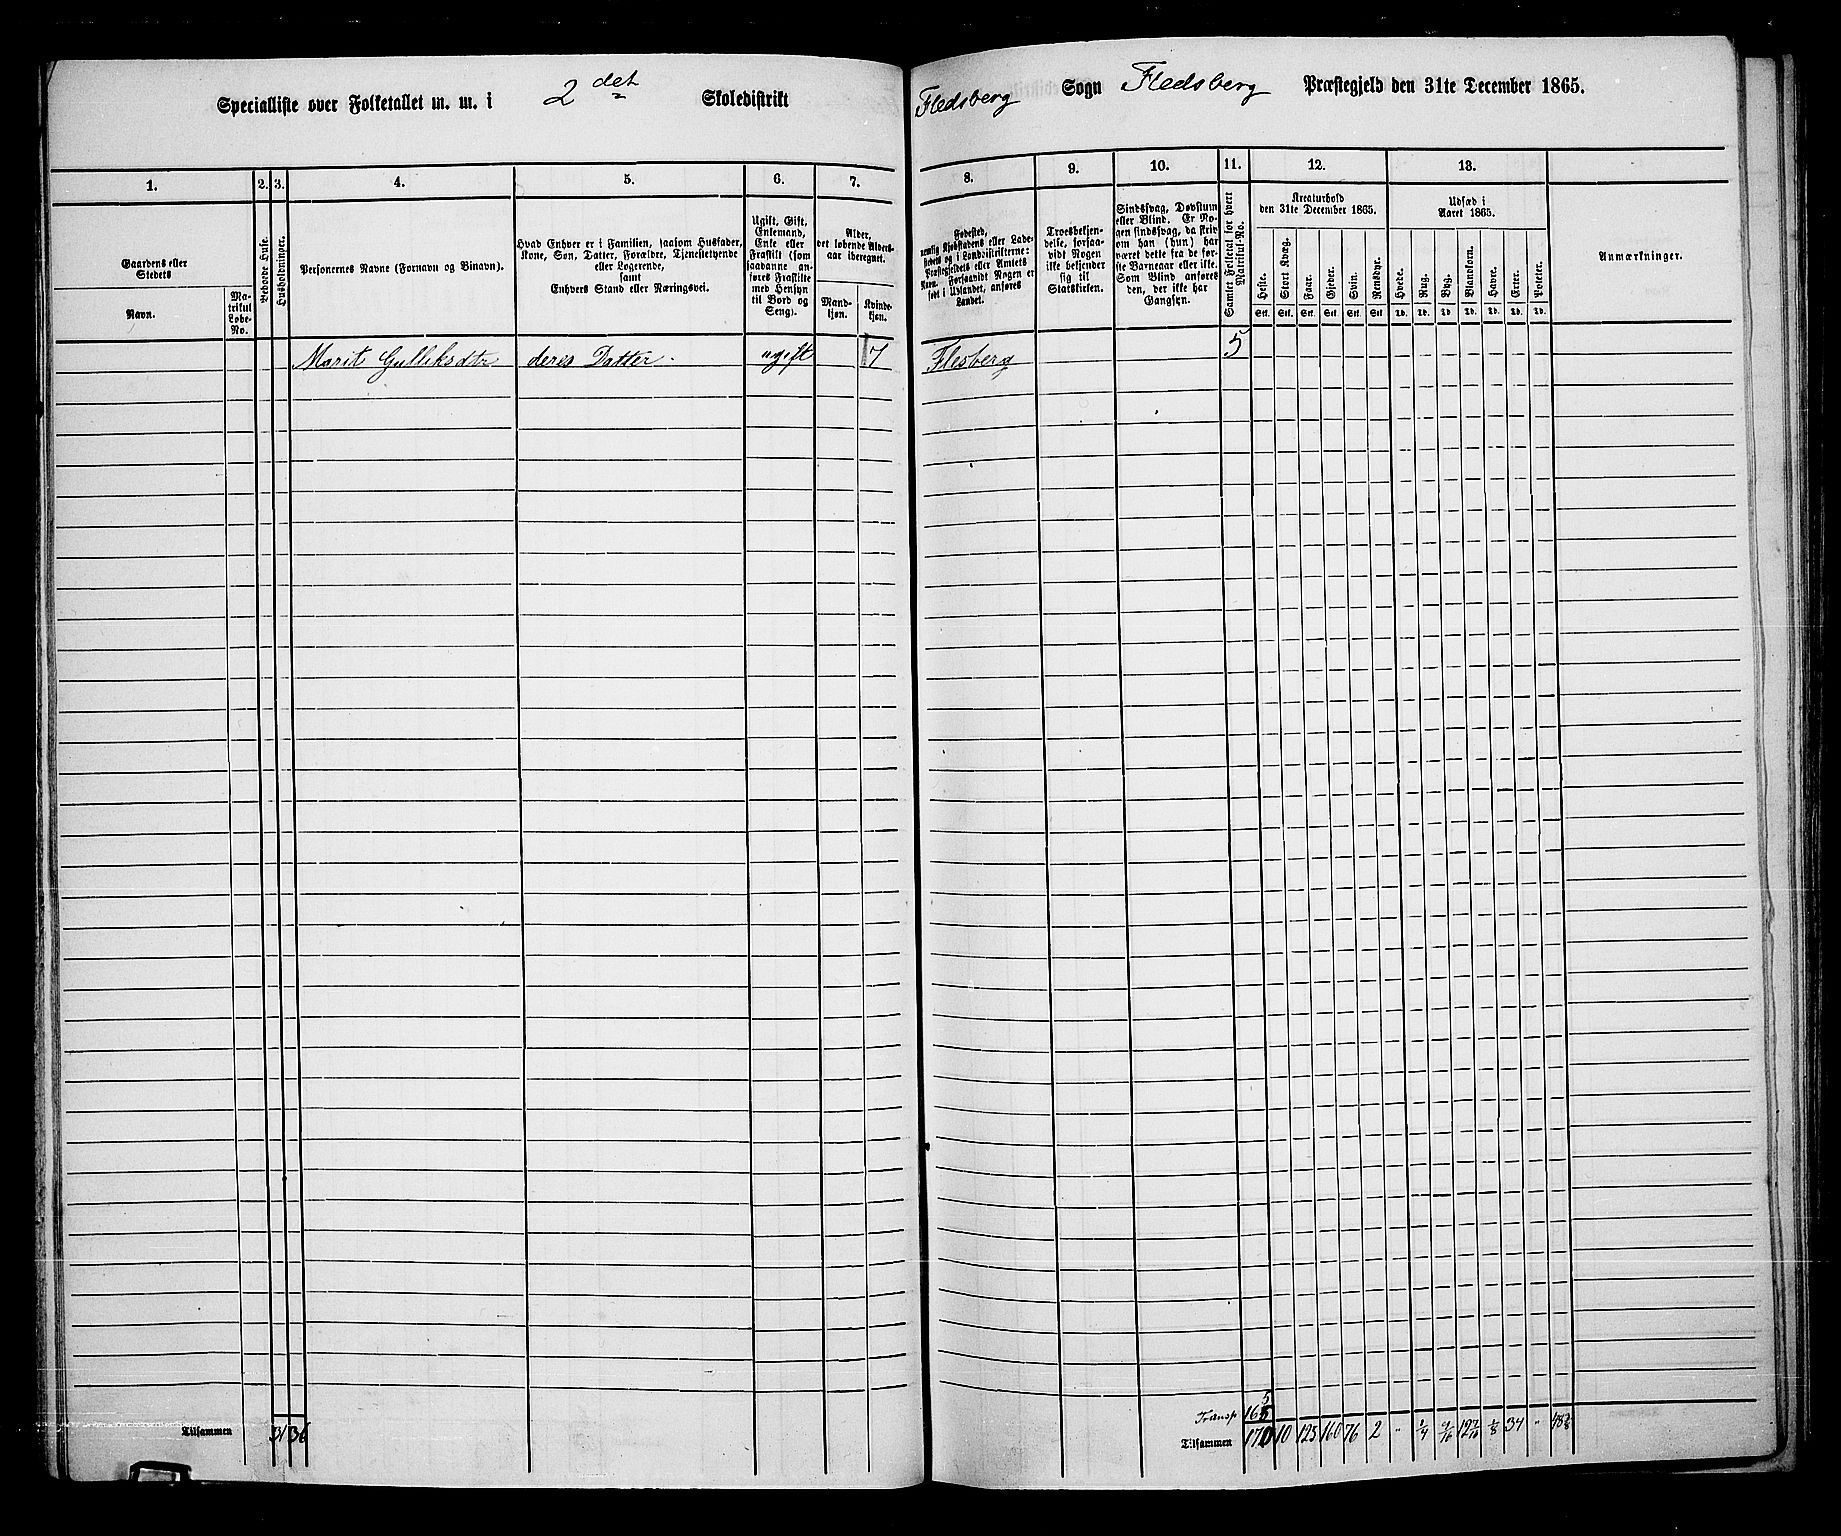 Specialliste over Folketallet m. m. i 2det Skoledistrikt Fledsberg Sogn Fledsberg Præstegjeld den 31te December 1865.
1. 2. 3. 4. 5. 6. 7. 8. 9. 10. 11. 12. 13.
Gaardens eller
Stedets
Navn.
Ma-
trikul
Løbe-
No.
Beboede Huse.
Husholdninger.
Personernes Navne (Fornavn og Binavn).
Hvad Enhver er i Familien, saasom Husfader,
Kone, Søn, Datter, Forældre, Tjenestetyende
eller Logerende,
samt
Enhvers Stand eller Næringsvei.
Ugift, Gift,
Enkemand,
Enke eller
Fraskilt (som
saadanne an-
føres Fraskilte
med Hensyn
til Bord og
Seng).
Alder,
det løbende Alders-
aar iberegnet.
Mand-
kjøn.
Kvinde-
kjøn.
Fødested,
nemlig Kjøbstadens eller Lade-
stedets og i Landdistrikterne:
Præstegjeldets eller Amtets
Navn. Forsaavidt Nogen er
født i Udlandet, anføres
Landet.
Troesbekjen-
delse, forsaa-
vidt Nogen
ikke bekjender
sig til
Statskirken.
Sindssvag, Døvstum
eller Blind. Er No-
gen sindssvag, da skriv
om han (hun) har
været dette fra de før-
ste Barneaar eller ikke.
Som Blind anføres
den, der ikke har
Gangsyn.
Samlet Folketal for hvert
Matrikul-No.
Kreaturhold
den 31te December 1865.
Heste.
Stort Kvæg.
Faar.
Gjeder.
Svin.
Rensdyr.
Stk. Stk. Stk. Stk. Stk. Stk.
Udsæd i
Aaret 1865.
Hvede.
Rug.
Byg.
Blandkorn.
Havre.
Erter.
Poteter.
Td. Td. Td. Td. Td. Td. Td.
Anmærkninger.
Marit Gulliksdtr deres Datter. ugift 7 Flesberg 5
Transp 165
5
Tilsammen 31 36
Tilsammen 170 10 123 160 76 2 " 1/4 9/16 12 7/16 1/8 34 "